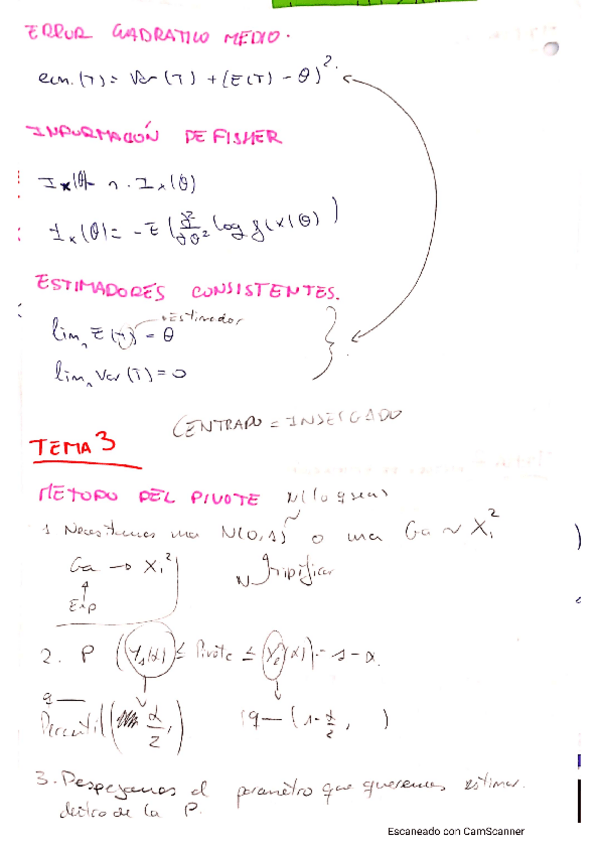 ERROR CUADRATICO MEDIO.
ecm.(T) = Var(T) + (E(T) - θ)².
INFORMACIÓN DE FISHER
I_X(θ) = n · I_x(θ)
I_x(θ) = -E(∂²/∂θ² log f(x|θ))
ESTIMADORES CONSISTENTES.
lim_n E(T) = θ → Estimador
lim_n Var(T) = 0
CENTRADO = INSESGADO
TEMA 3
MÉTODO DEL PIVOTE N(lo q sea)
1 Necesitamos una N(0,1) o una Ga ~ X₁²
Ga → X₁² N tipificar
Exp
2. P (Y₁(α) ≤ Pivote ≤ Y₂(α)) = 1 - α.
q—
Percentil (α/2, ) q— (1-α/2, )
3. Despejamos el parametro que queremos estimar
dentro de la P.
Escaneado con CamScanner